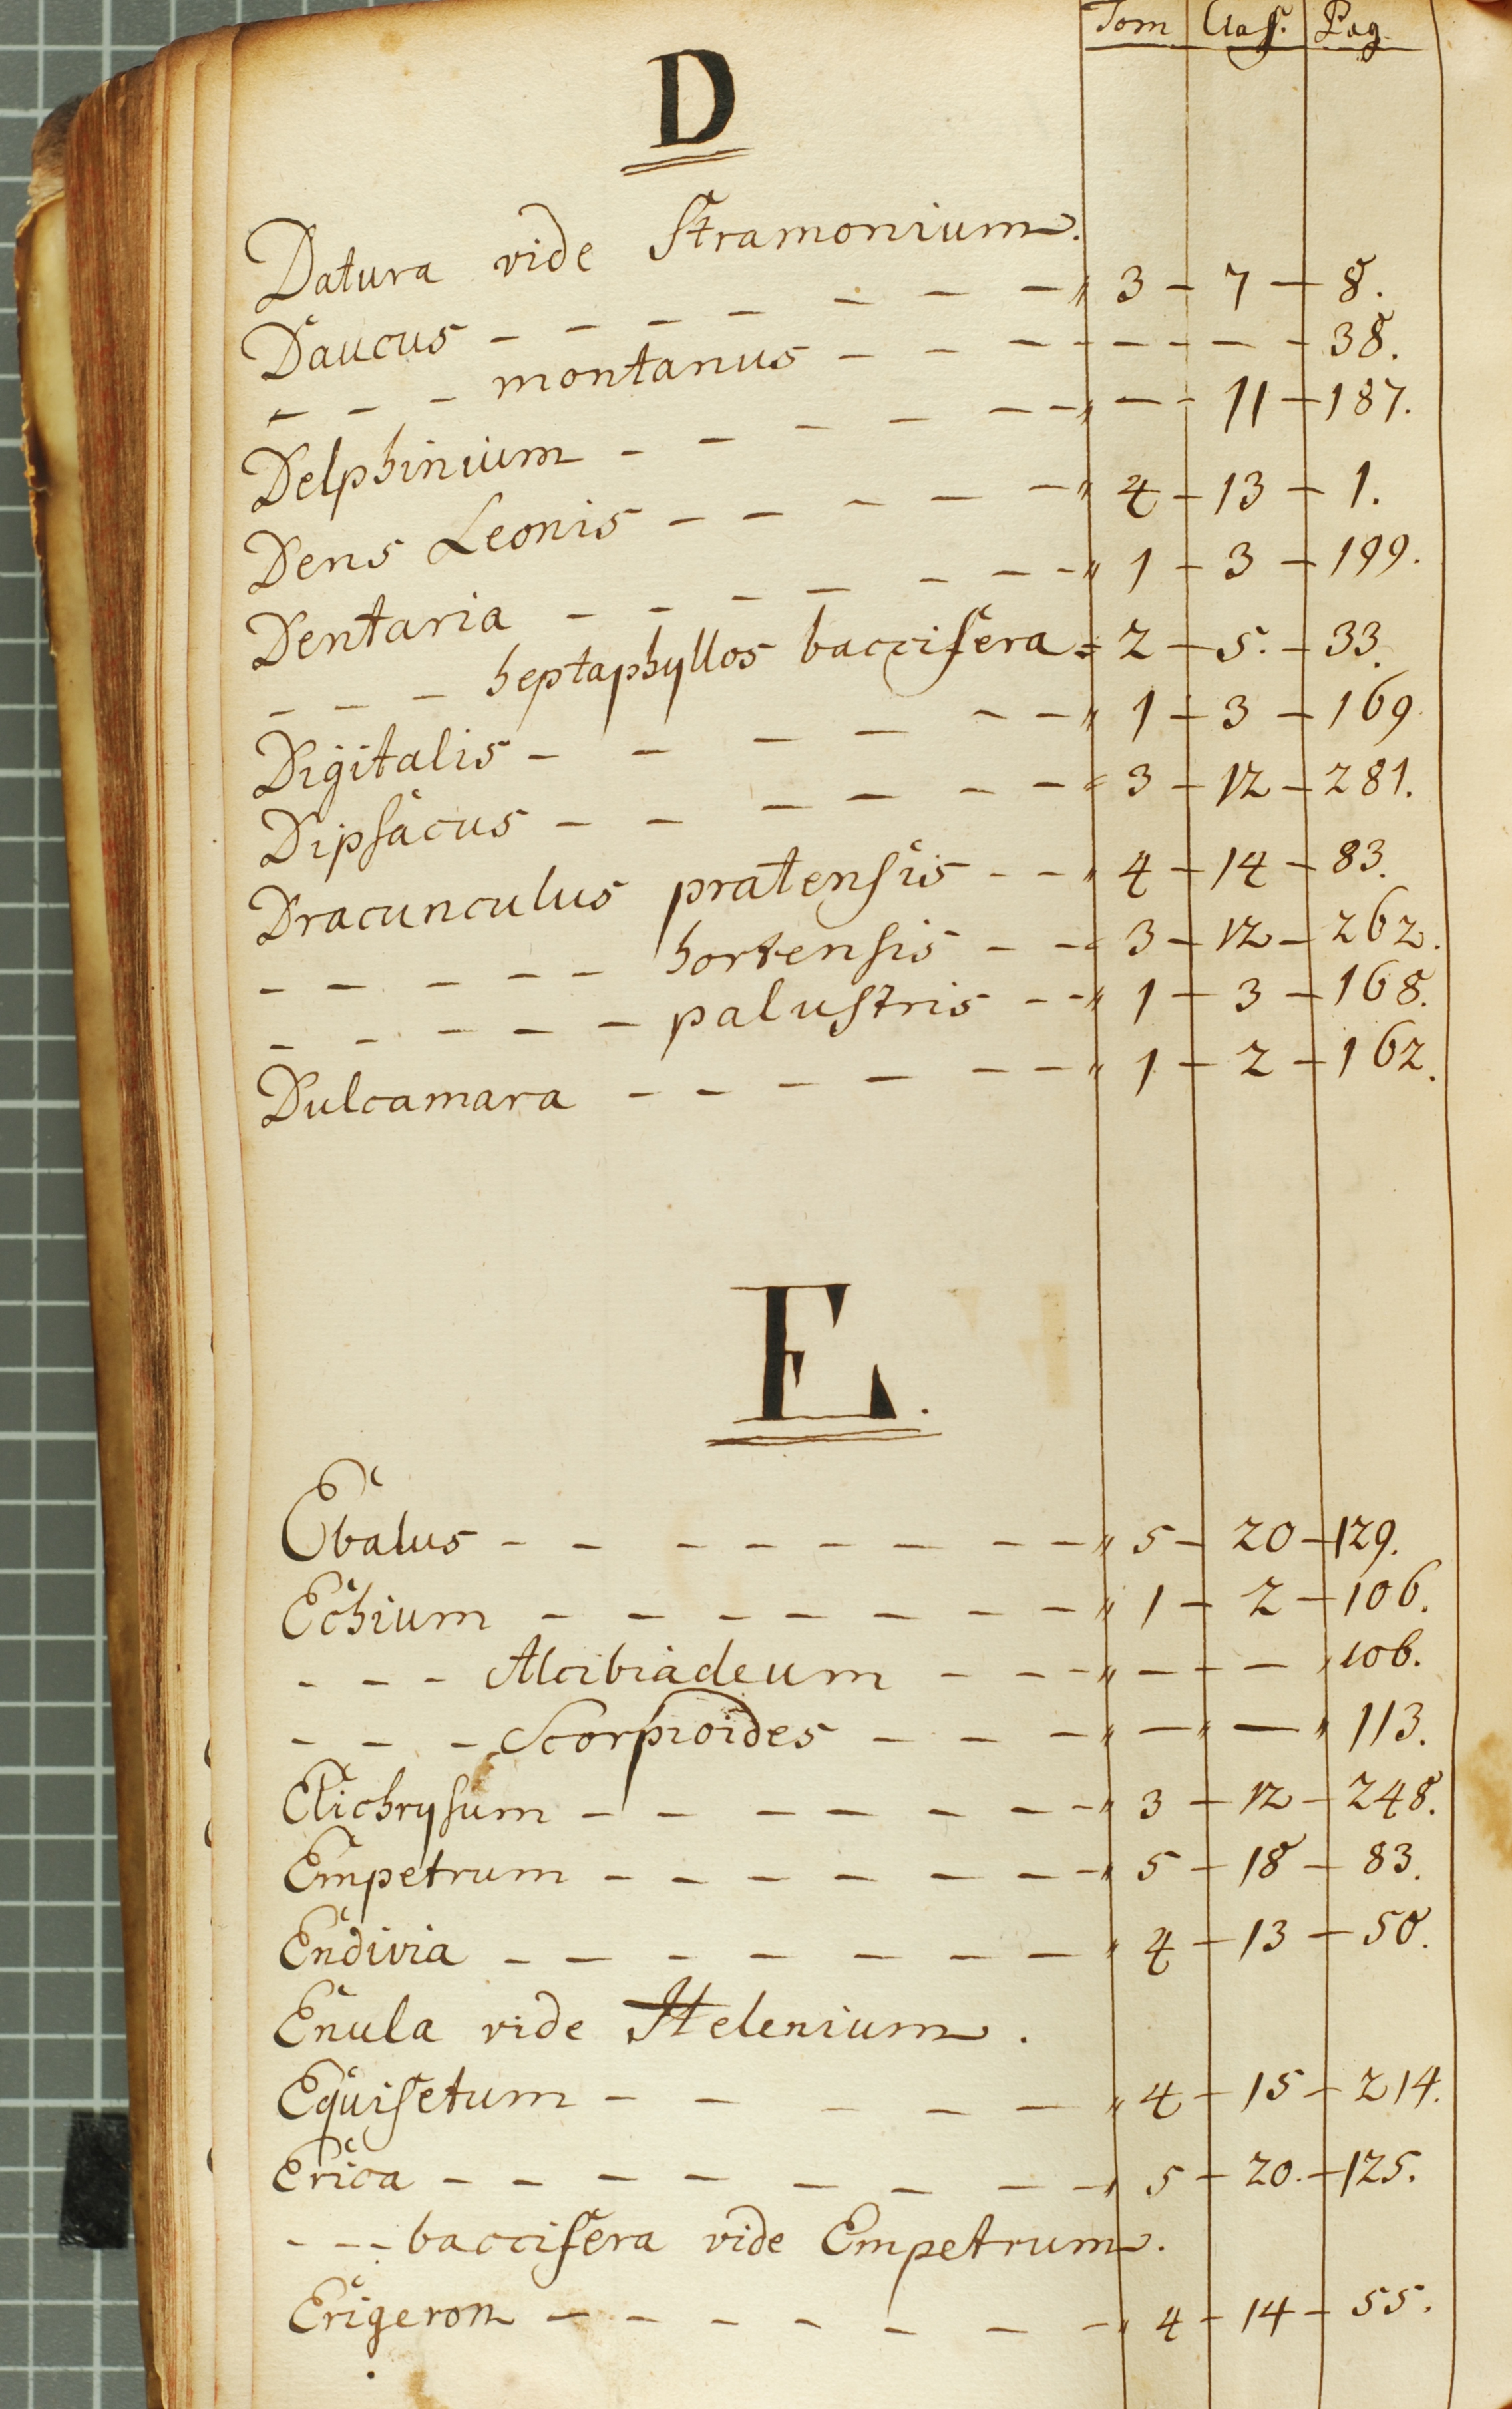 Tom Clas. Pag
D
Datura vide Stramonium.
Daucus - - - - - - - " 3 - 7 - 8.
- - - montanus - - - - - - - 38.
Delphinium - - - - - - - " - - 11 - 187.
Dens Leonis - - - - - " 4 - 13 - 1.
Dentaria - - - - - - - " 1 - 3 - 199.
- - - heptaphyllos baccifera = 2 - 5. - 33.
Digitalis - - - - - - " 1 - 3 - 169.
Dipsacus - - - - - - = 3 - 12 - 281.
Dracunculus pratensis - - " 4 - 14 - 83.
- - - - - hortensis - - = 3 - 12 - 262.
- - - - - palustris - - " 1 - 3 - 168.
Dulcamara - - - - - - " 1 - 2 - 162.
E.
Ebalus - - - - - - - - " 5 - 20 - 129.
Echium - - - - - - - " 1 - 2 - 106.
- - - Alcibiadeum - - - " - - - " 106.
- - - Scorpioides - - - " - " - " 113.
Elichrysum - - - - - - - " 3 - 12 - 248.
Empetrum - - - - - - - " 5 - 18 - 83.
Endivia - - - - - - - " 4 - 13 - 50.
Enula vide Helenium.
Equisetum - - - - - " 4 - 15 - 214.
Erica - - - - - - - - " 5 - 20. - 125.
- - - baccifera vide Empetrum.
Erigeron - - - - - - - " 4 - 14 - 55.